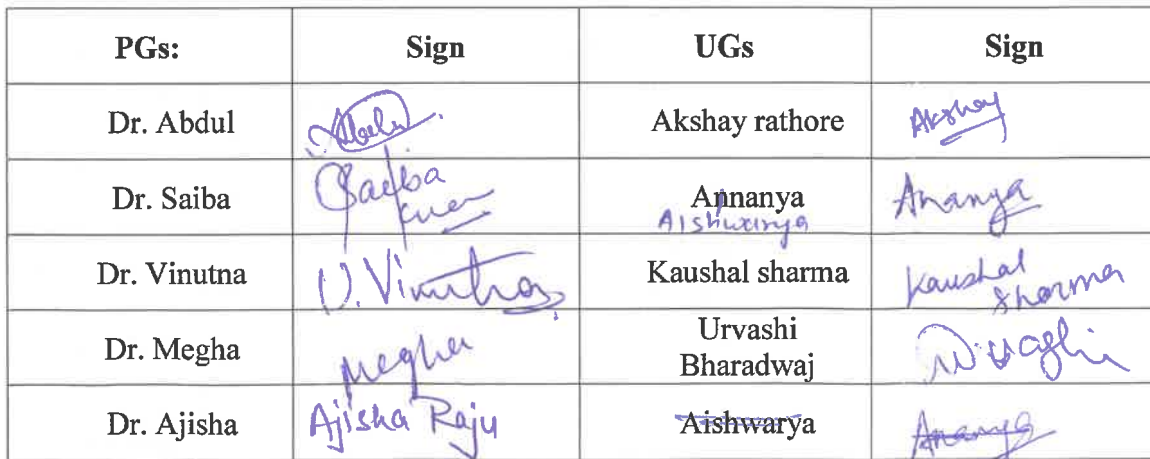 PGs: Sign UGs Sign
Dr. Abdul Akshay rathore Akshay
Dr. Saiba Saiba Annanya Ananya
Aishwarya
Dr. Vinutna V. Vinutna Kaushal sharma Kaushal
Sharma
Dr. Megha Megha Urvashi
Bharadwaj
Dr. Ajisha Ajisha Raju Aishwarya Ananya